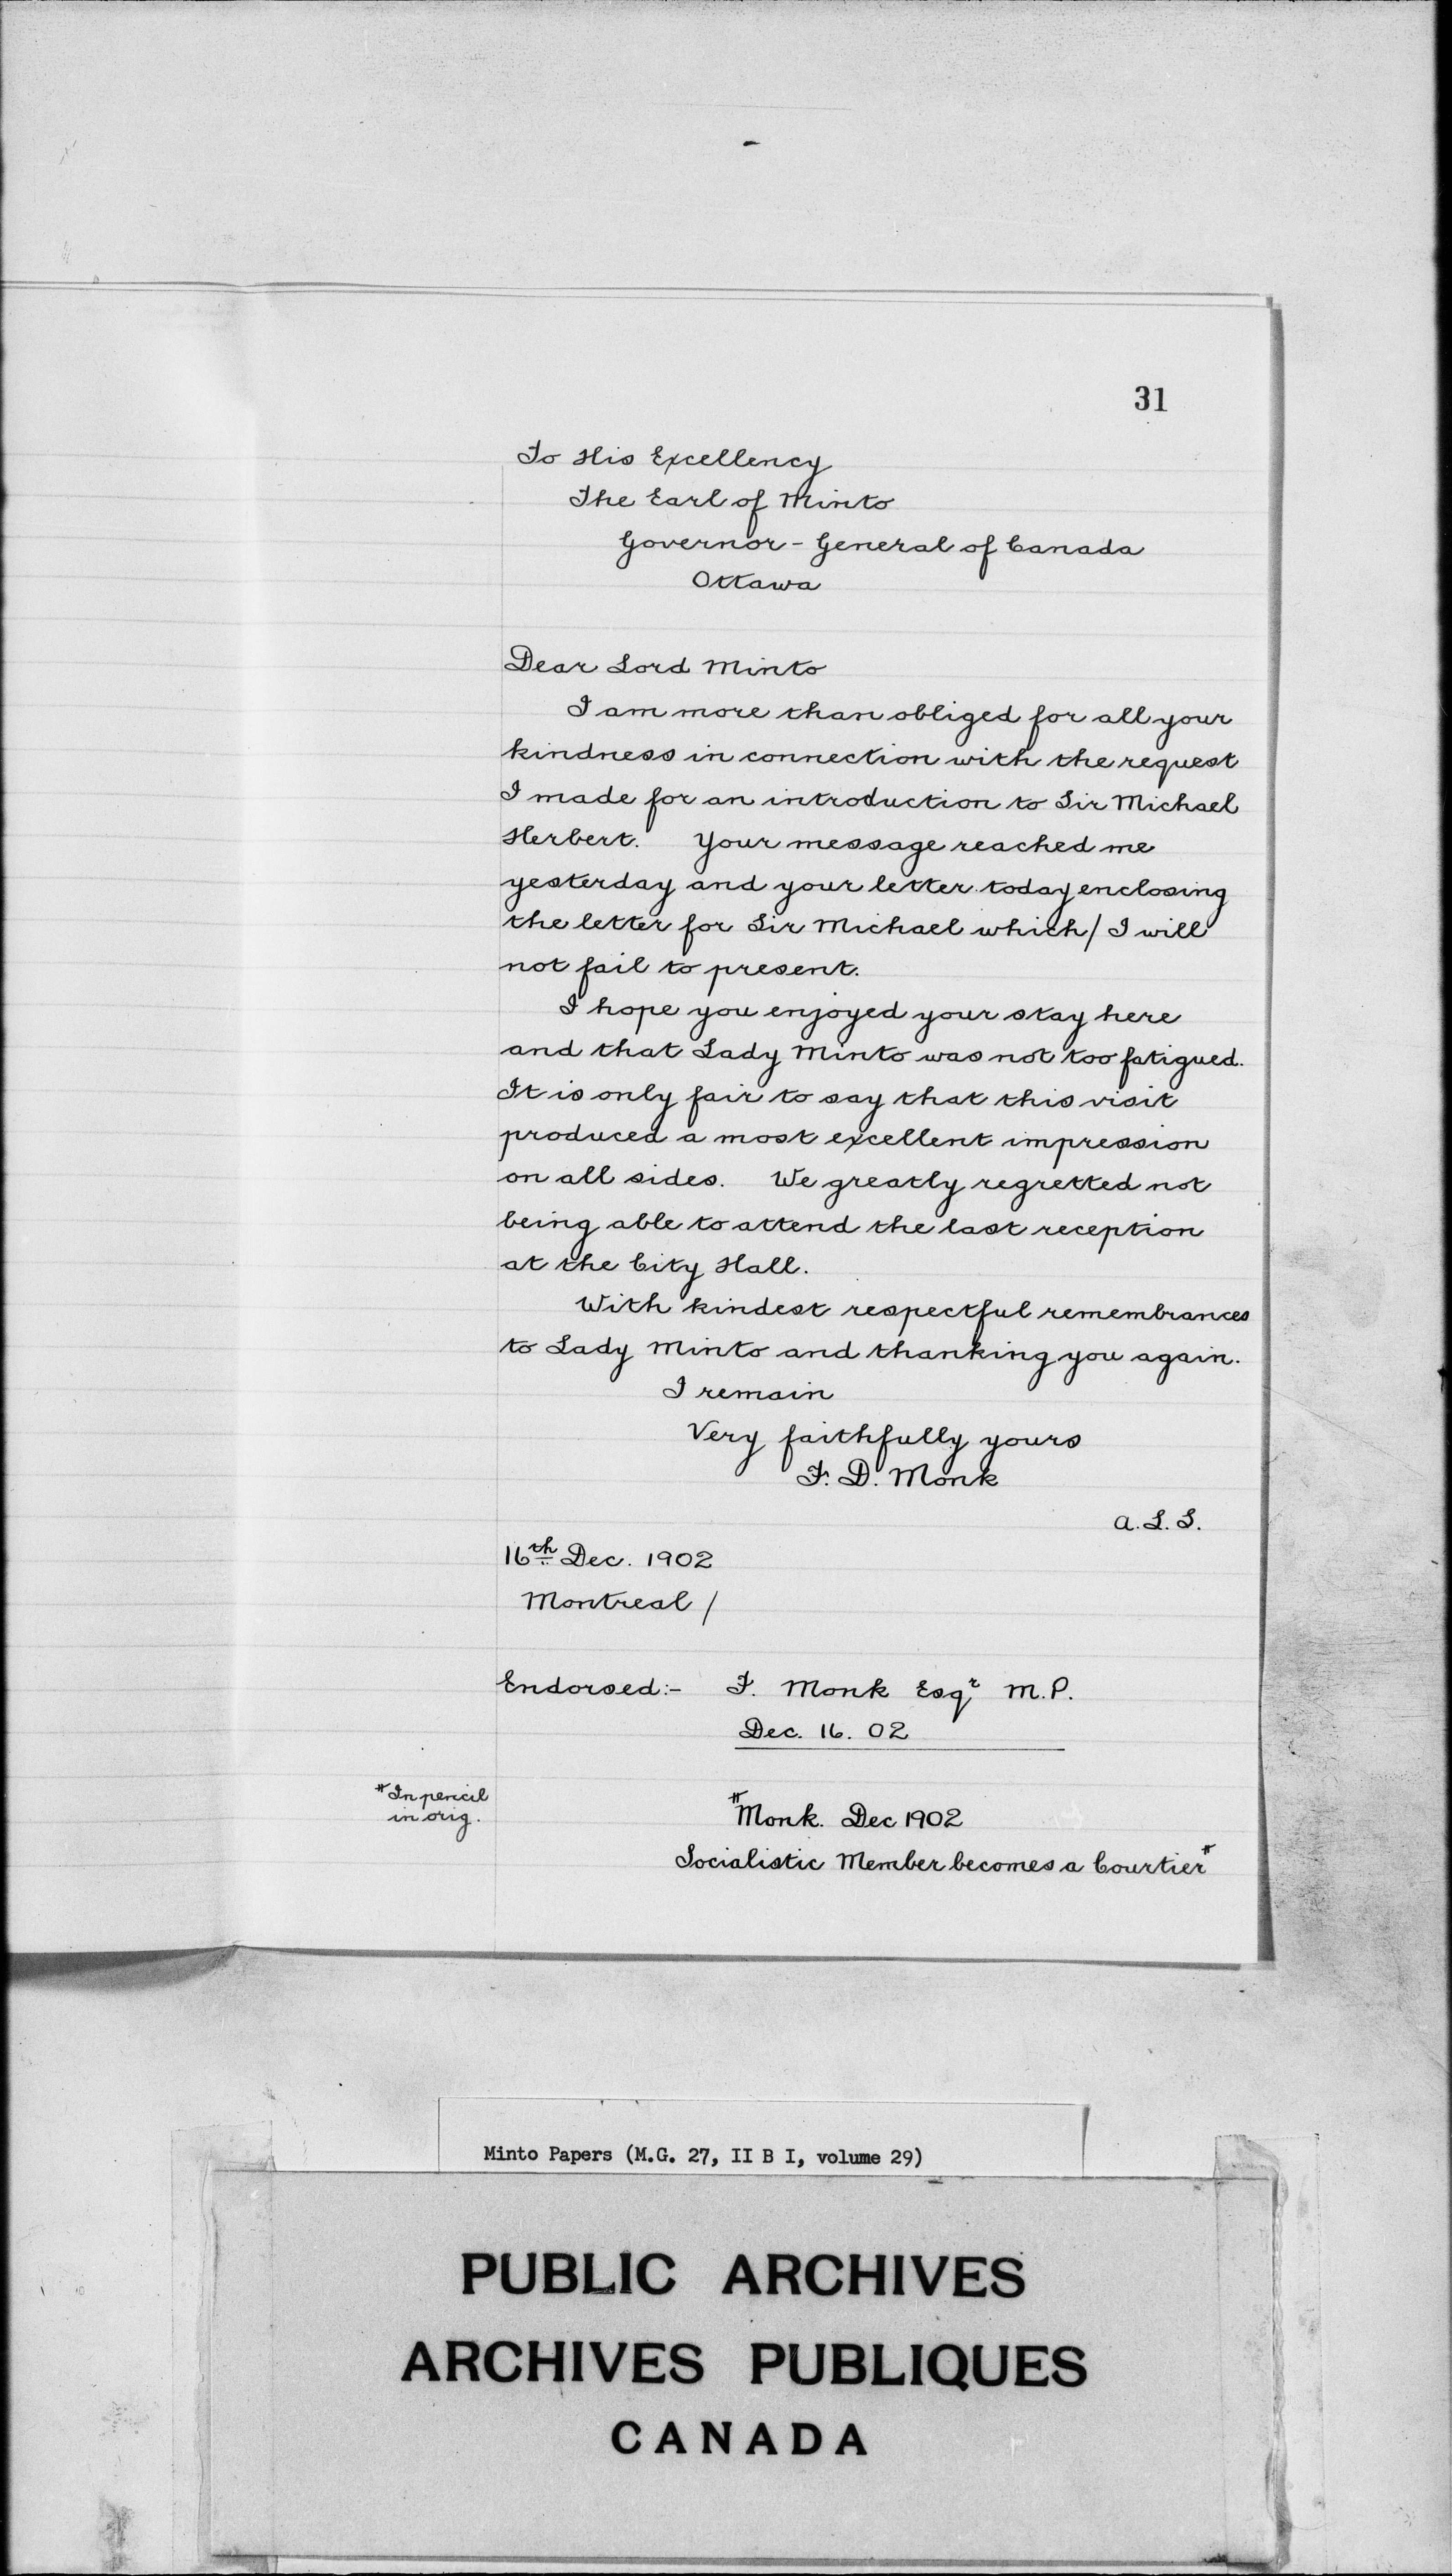 31
To His Excellency
The Earl of Minto
Governor - General of Canada
Ottawa
Dear Lord Minto
I am more than obliged for all your
kindness in connection with the request
I made for an introduction to Sir Michael
Herbert. Your message reached me
yesterday and your letter today enclosing
the letter for Sir Michael which / I will
not fail to present.
I hope you enjoyed your stay here
and that Lady Minto was not too fatigued.
It is only fair to say that this visit
produced a most excellent impression
on all sides. We greatly regretted not
being able to attend the last reception
at the City Hall.
With kindest respectful remembrances
to Lady Minto and thanking you again.
I remain
Very faithfully yours
F. D. Monk
A. L. S.
16th Dec. 1902
Montreal /
Endorsed:- F. Monk Esqr M.P.
Dec. 16. 02
# In pencil
in orig.
# Monk. Dec 1902
Socialistic Member becomes a Courtier #
Minto Papers (M.G. 27, II B I, volume 29)
PUBLIC ARCHIVES
ARCHIVES PUBLIQUES
CANADA